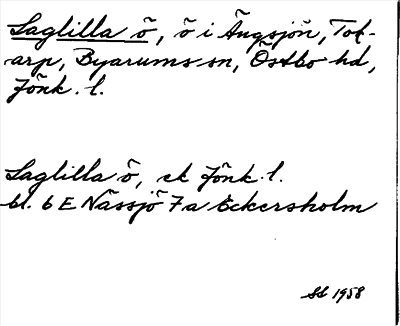 Saglilla ö, ö i Ängsjön, Tof-
arp, Byarums sn, Östbo hd,
Jönk. l.
Saglilla ö, ek Jönk. l.
bl. 6 E Nässjö 7 a Eckersholm
1958